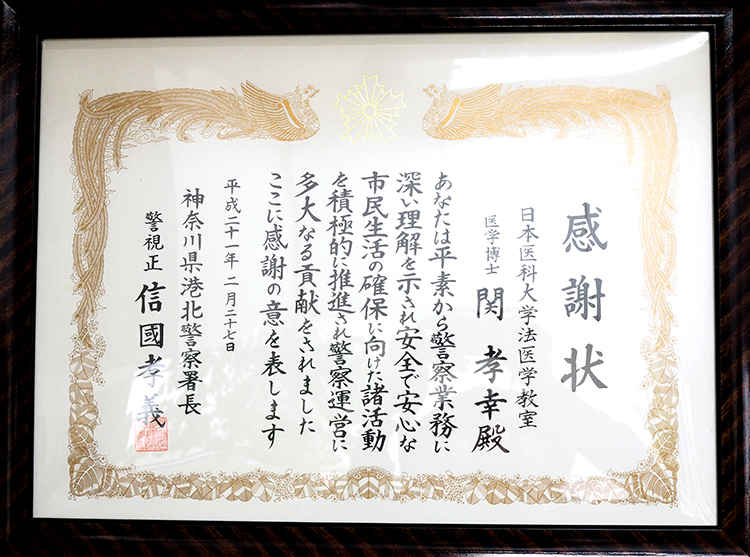 感謝状
日本医科大学法医学教室
医学博士 関孝幸殿
あなたは平素から警察業務に
深い理解を示され安全で安心な
市民生活の確保に向けた諸活動
を積極的に推進され警察運営に
多大なる貢献をされました
ここに感謝の意を表します
平成二十一年二月二十七日
神奈川県港北警察署長
警視正 信國孝義